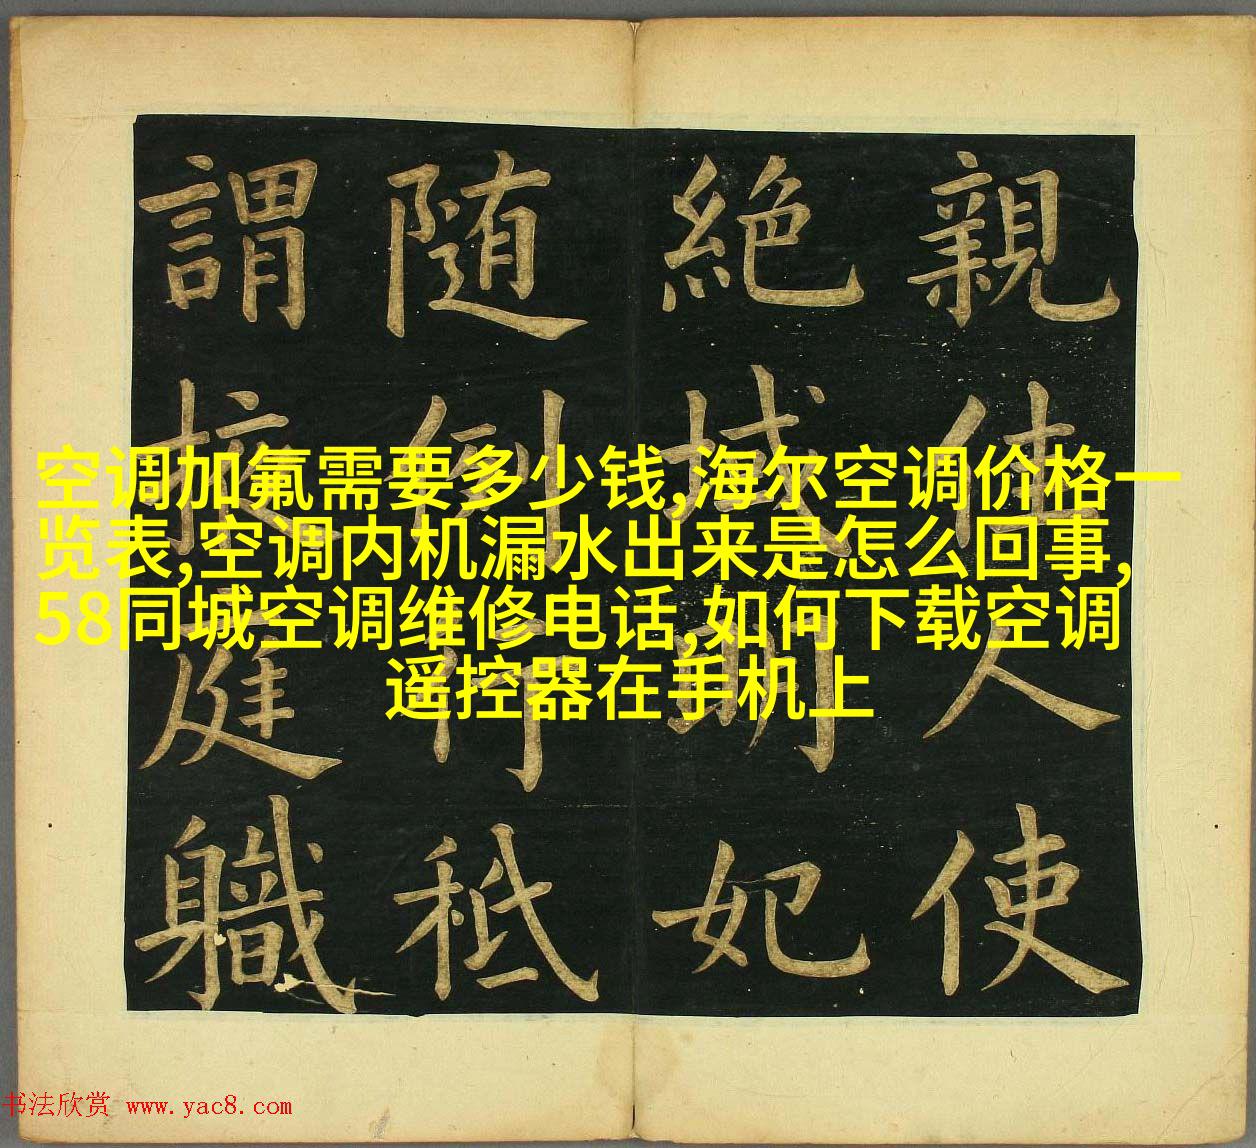 親人使
絶域明妃
随行秪
謂掖庭職
空调加氟需要多少钱,海尔空调价格一
览表,空调内机漏水出来是怎么回事,
58同城空调维修电话,如何下载空调
遥控器在手机上
书法欣赏 www.yac8.com